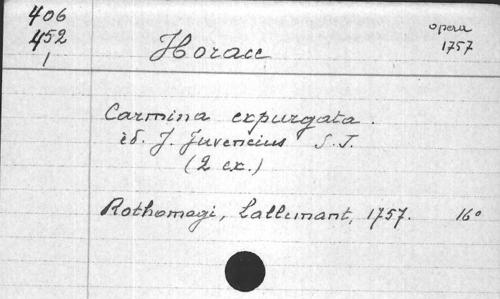 406
452
1
Horace
opera
1757
Carmina expurgata.
ed. J. Juvencius S.J.
(2 ex.)
Rothomagi, Lallemant, 1757. 16°